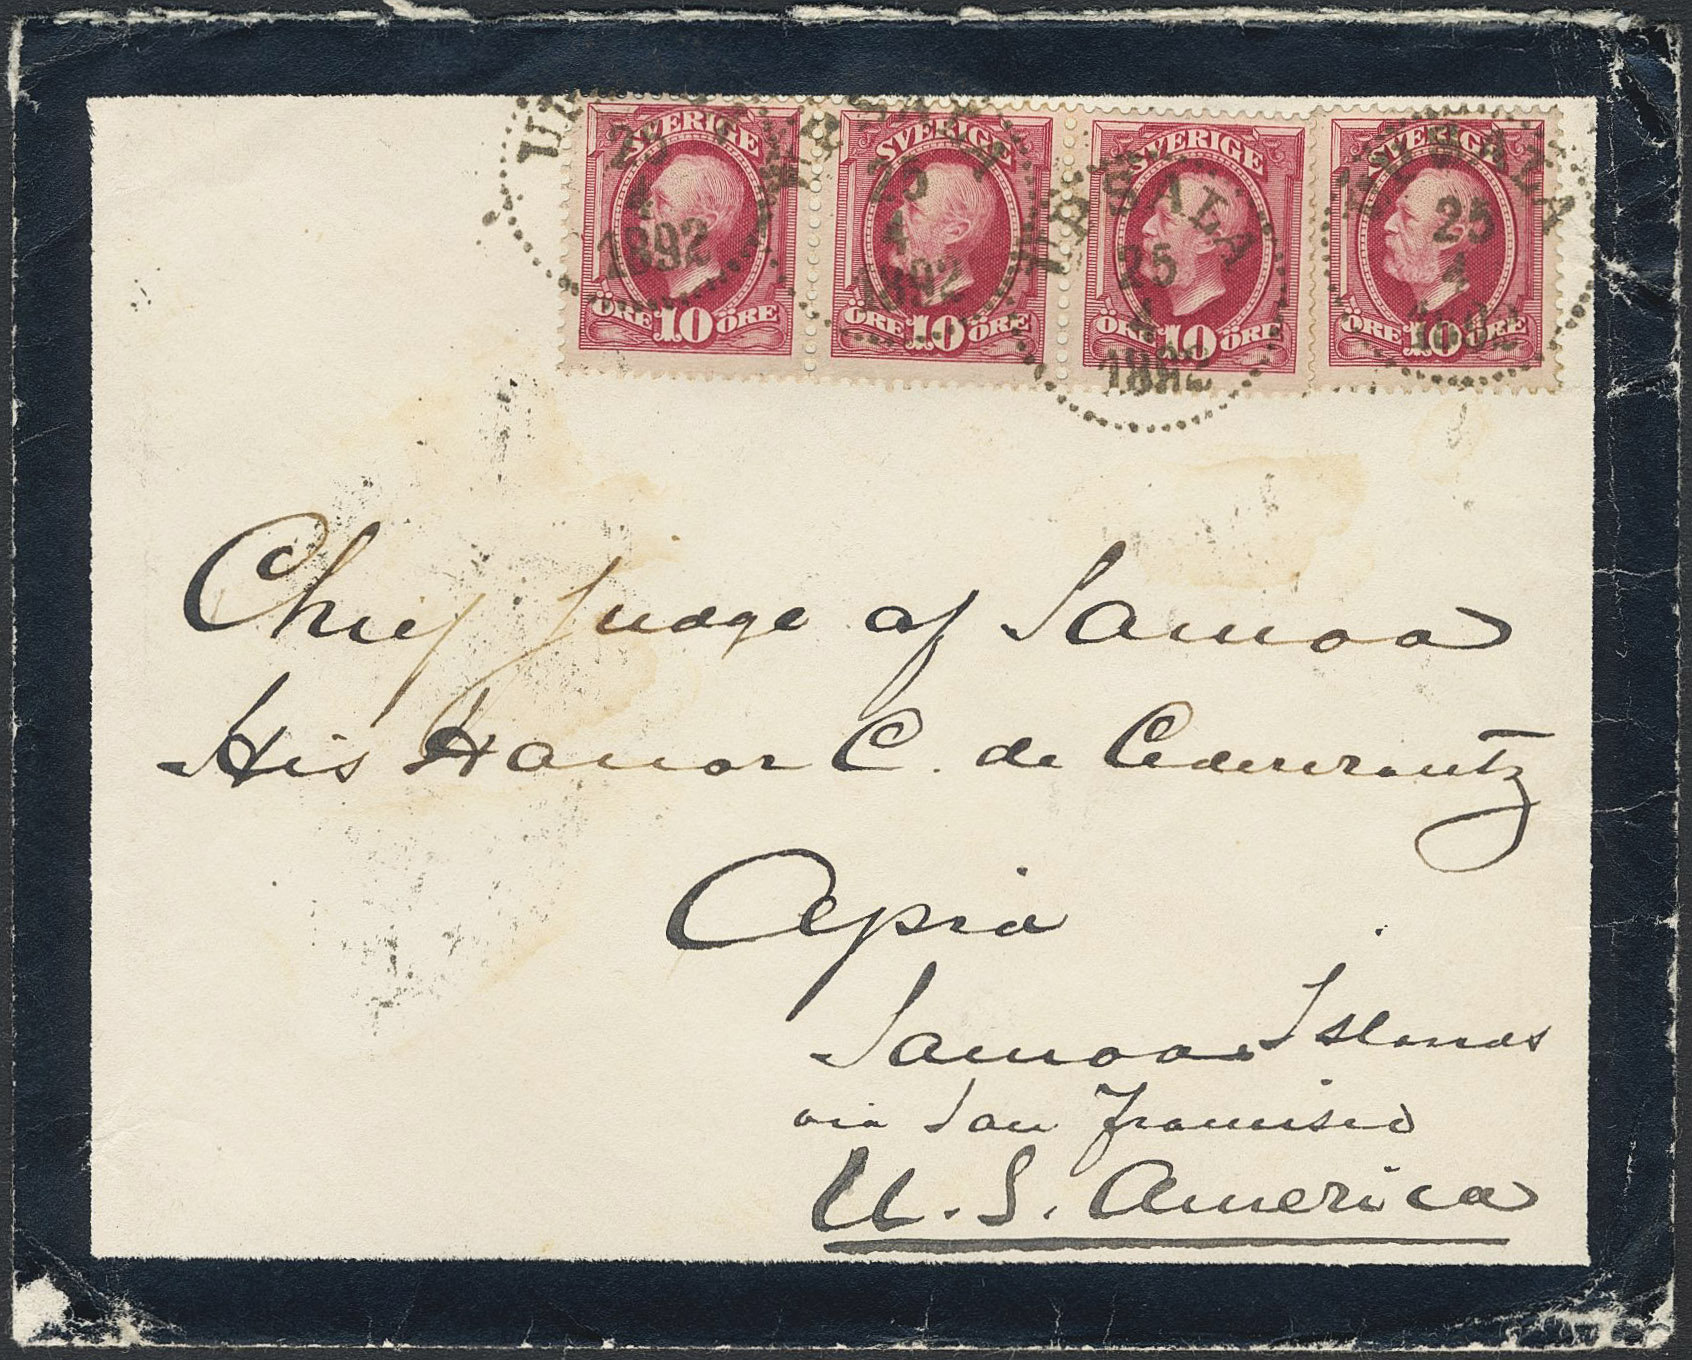 UPSALA 25 4 1892
SVERIGE
ÖRE 10 ÖRE
UPSALA 25 4 1892
SVERIGE
ÖRE 10 ÖRE
UPSALA 25 4 1892
SVERIGE
ÖRE 10 ÖRE
UPSALA 25 4 1892
SVERIGE
ÖRE 10 ÖRE
Chief Judge of Samoa
His Honor C. de Cedercrantz
Apia
Samoa Islands
via San Francisco
U. S. America